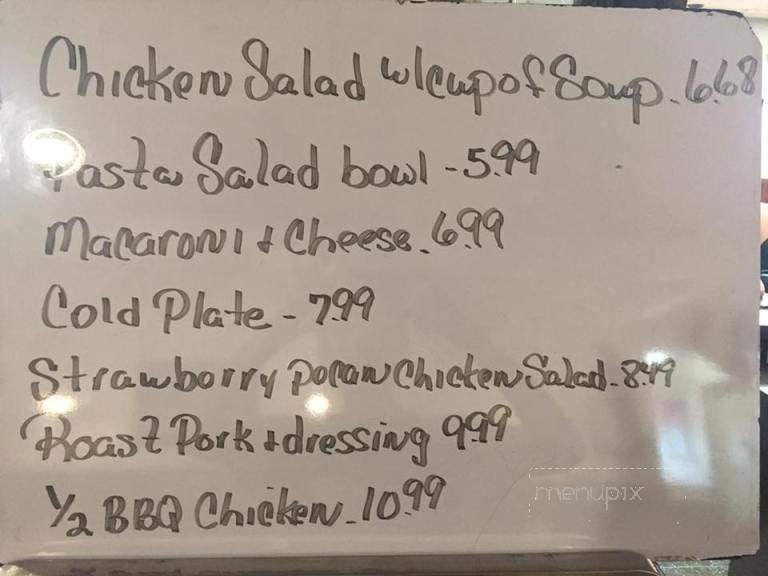 Chicken Salad w/cup of Soup - 6.68
Pasta Salad bowl - 5.99
Macaroni + Cheese - 6.99
Cold Plate - 7.99
Strawborry pocan Chicken Salad - 8.49
Roast Pork + dressing 9.99
1/2 BBQ Chicken - 10.99
menupix